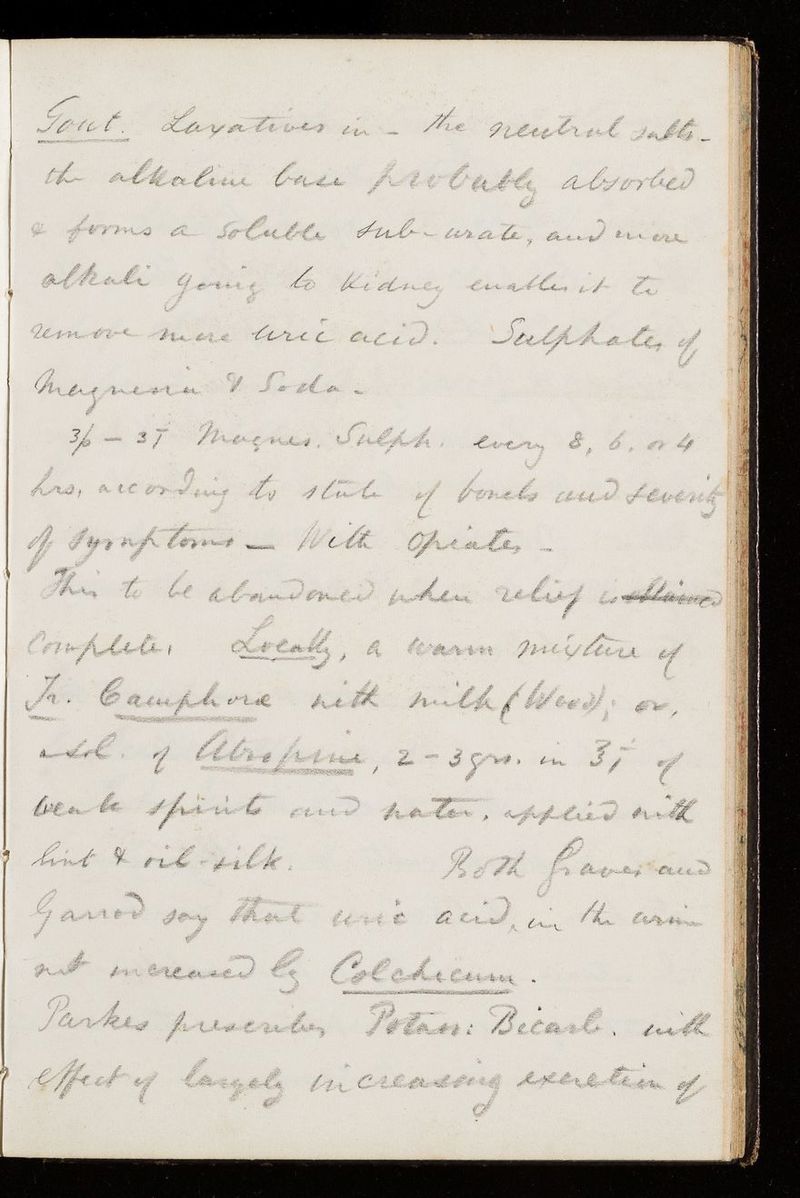 Gout. Laxatives in - the neutral salts -
the alkaline base probably absorbed
& forms a soluble sub-urate, and more
alkali going to Kidney enables it to
remove more uric acid. Sulphates of
Magnesia & Soda -
ʒß - ʒī Magnes. Sulph. every 8, 6, or 4
hrs, according to state of bowels and severity
of symptoms - With Opiates -
This to be abandoned when relief is attained
complete. Locally, a warm mixture of
Tr. Camphorae with milk (Wood); or,
a sol. of Atropine, 2-3 grs. in ℥ī of
weak spirits and water, applied with
lint & oil-silk. Both Graves and
Garrod say that uric acid, in the urine
not increased by Colchicum.
Parkes prescribes Potass: Bicarb. with
effect of largely increasing excretion of